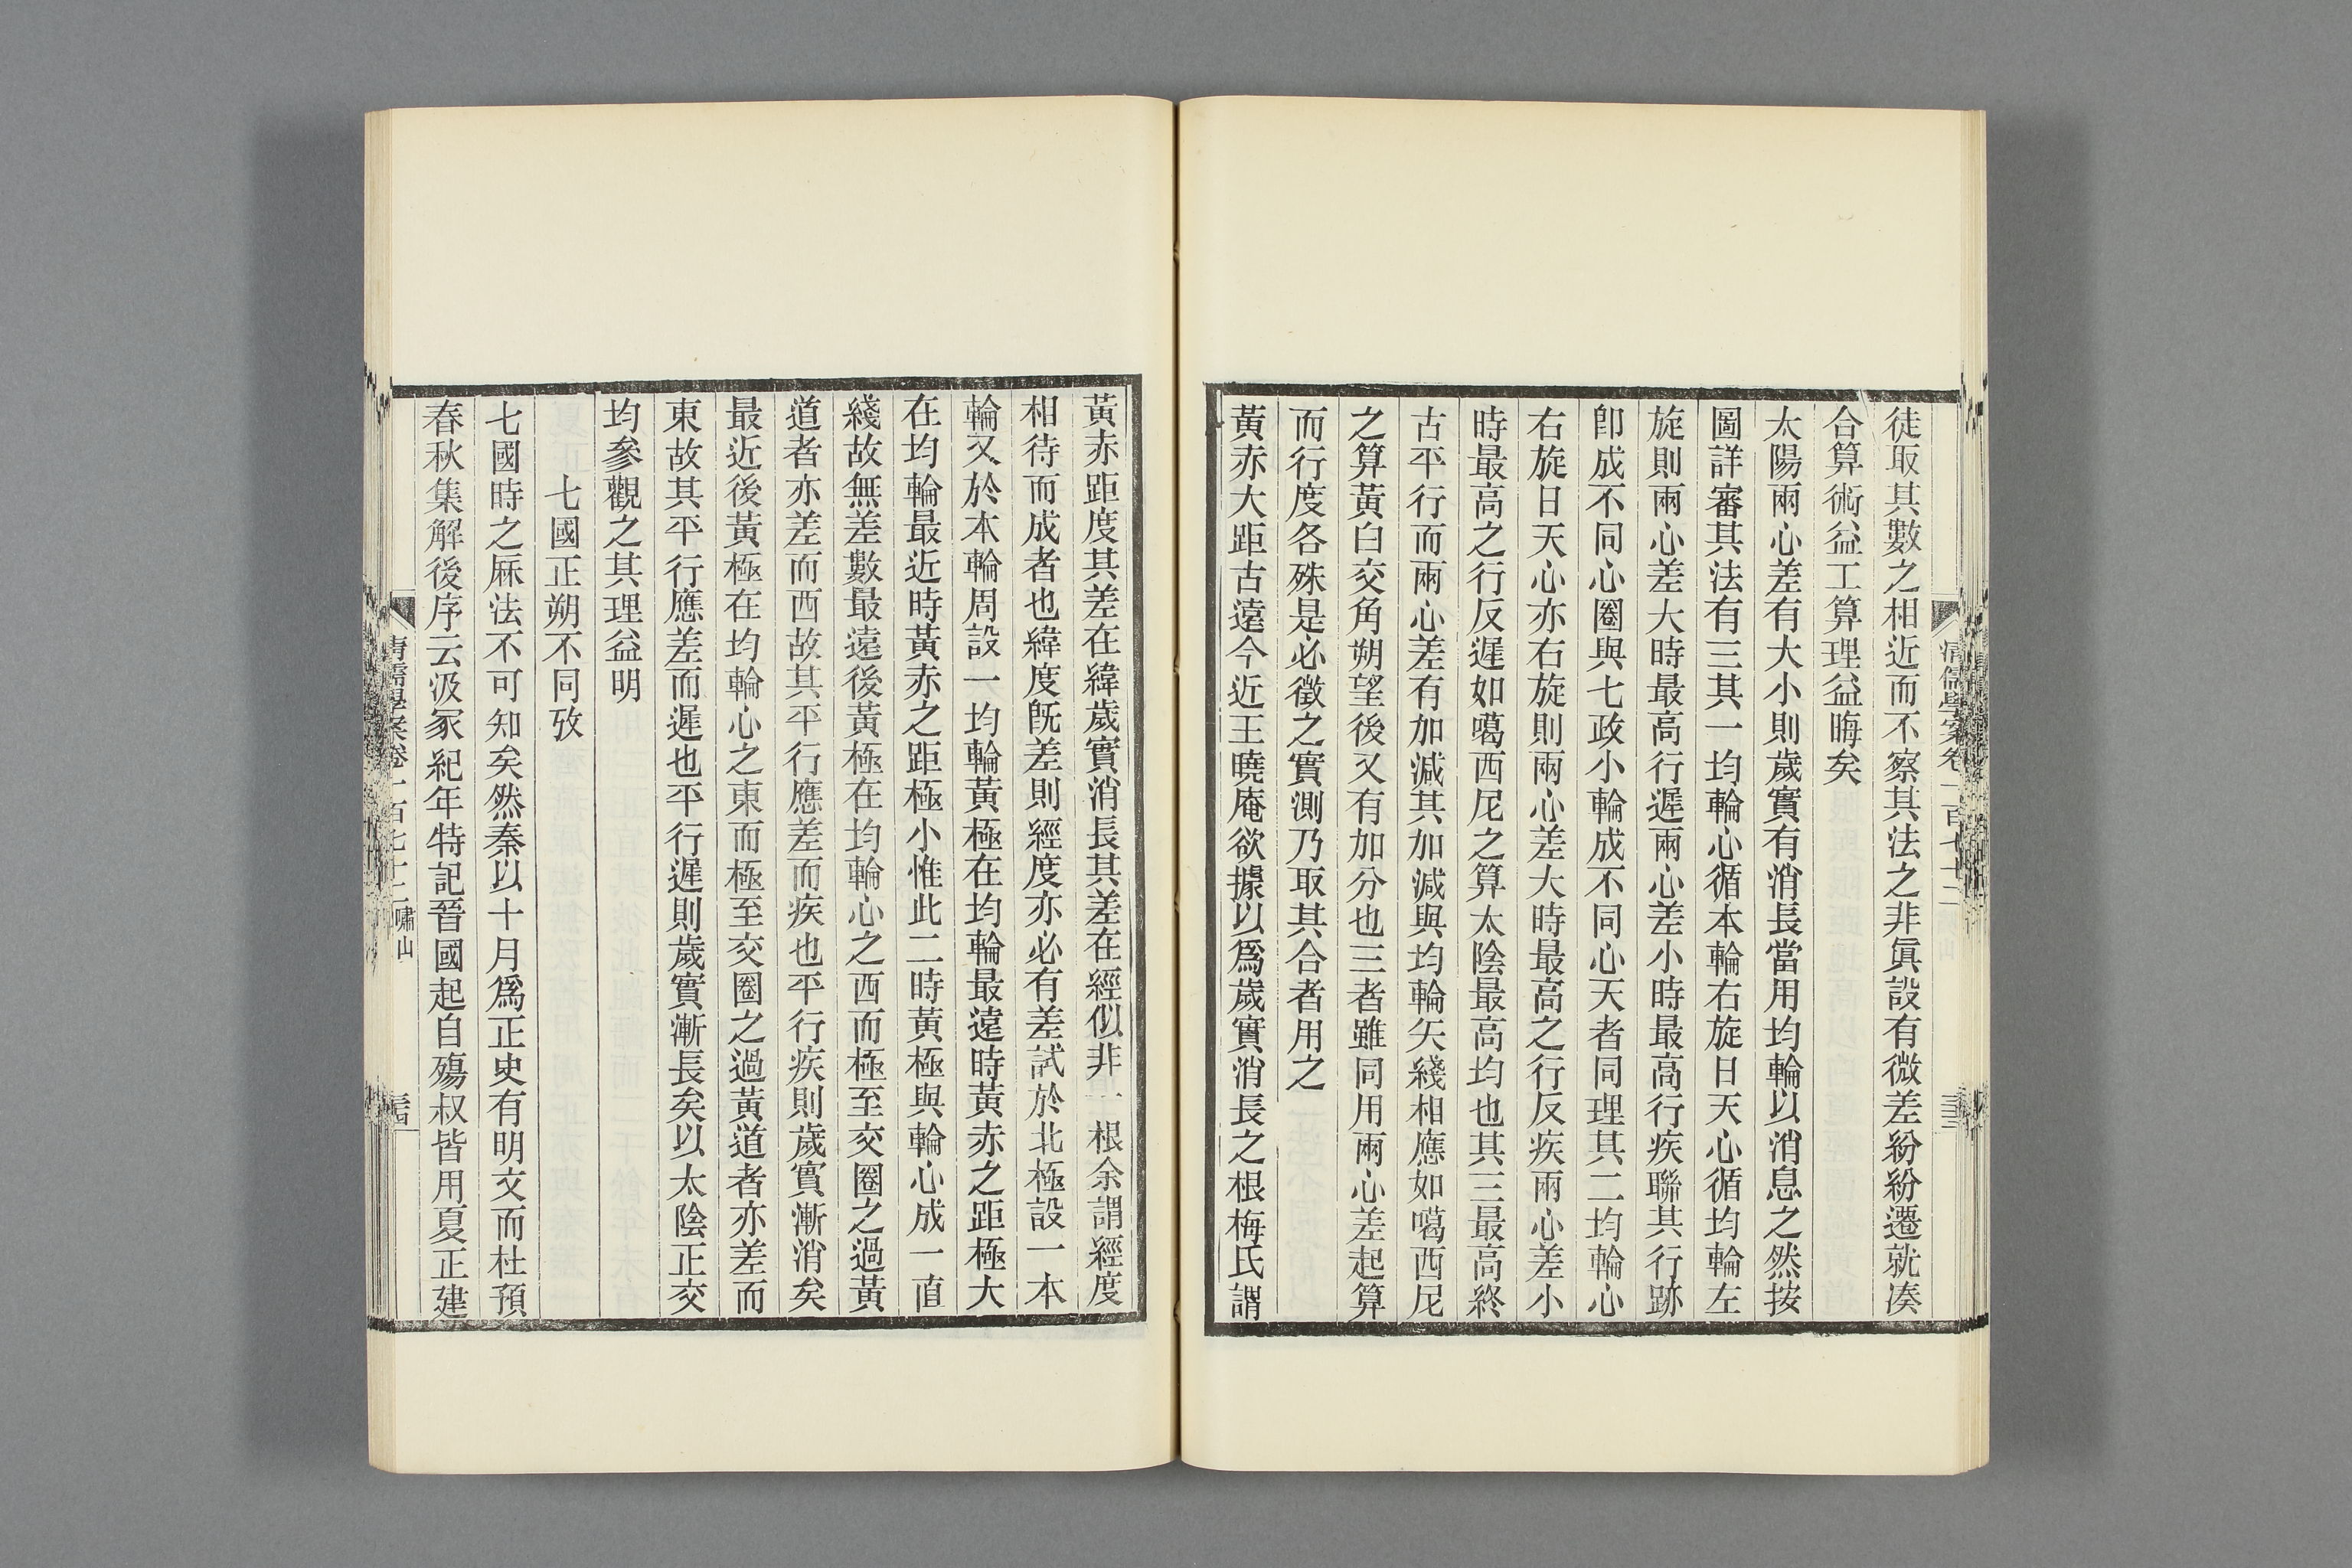 徒取其數之相近而不察其法之非眞設有微差紛紛遷就湊
合算術益工算理益晦矣
太陽兩心差有大小則歲實有消長當用均輪以消息之然按
圖詳審其法有三其一均輪心循本輪右旋日天心循均輪左
旋則兩心差大時最高行遲兩心差小時最高行疾聯其行跡
卽成不同心圈與七政小輪成不同心天者同理其二均輪心
右旋日天心亦右旋則兩心差大時最高之行反疾兩心差小
時最高之行反遲如噶西尼之算太陰最高均也其三最高終
古平行而兩心差有加減其加減與均輪矢綫相應如噶西尼
之算黃白交角朔望後又有加分也三者雖同用兩心差起算
而行度各殊是必徵之實測乃取其合者用之
黃赤大距古遠今近王曉庵欲據以爲歲實消長之根梅氏謂
黃赤距度其差在緯歲實消長其差在經似非一根余謂經度
相待而成者也緯度旣差則經度亦必有差試於北極設一本
輪又於本輪周設一均輪黃極在均輪最遠時黃赤之距極大
在均輪最近時黃赤之距極小惟此二時黃極與輪心成一直
綫故無差數最遠後黃極在均輪心之西而極至交圈之過黃
道者亦差而西故其平行應差而疾也平行疾則歲實漸消矣
最近後黃極在均輪心之東而極至交圈之過黃道者亦差而
東故其平行應差而遲也平行遲則歲實漸長矣以太陰正交
均參觀之其理益明
七國正朔不同攷
七國時之厤法不可知矣然秦以十月爲正史有明文而杜預
春秋集解後序云汲冢紀年特記晉國起自殤叔皆用夏正建
清儒學案卷一百七十二 嘯山